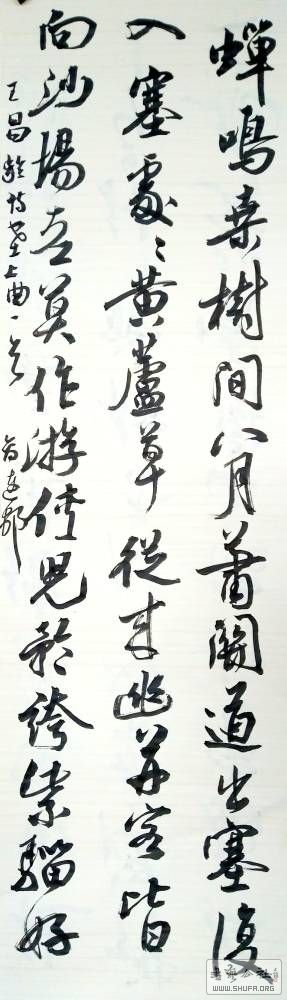 蟬鳴桑樹間八月蕭關道出塞復
入塞處〻黃蘆草從来幽并客皆
向沙場老莫作游俠兒矜誇紫騮好
王昌齡詩塞上曲一首
WWW.SHUFA.ORG